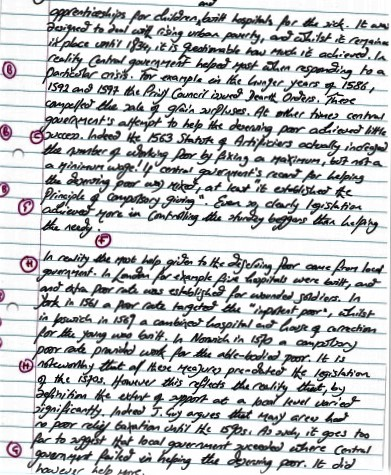 and
apprenticeships for children, built hospitals for the sick. It was
designed to deal with rising urban poverty, and whilst it remained
in place until 1834, it is questionable how much it achieved. In
reality Central government helped most when responding to a
particular crisis. For example in the hunger years of 1586,
1592 and 1597 the Privy Council issued Dearth Orders. These
compelled the sale of grain surpluses. At other times central
government's attempt to help the deserving poor achieved little
success. Indeed the 1563 Statute of Artificers actually increased
the number of working poor by fixing a maximum, but not a
a minimum wage. If central government's record for helping
the deserving poor was mixed, at least it established the
Principle of compulsory giving". Even so, clearly legislation
achieved more in controlling the sturdy beggars than helping
the needy.
In reality the most help given to the deserving poor came from local
government. In London for example five hospitals were built, and
and a poor rate was established for wounded soldiers. In
York in 1561 a poor rate targeted the "impotent poor", whilst
in Ipswich in 1569 a combined hospital and house of correction
for the young was built. In Norwich in 1570 a compulsory
poor rate provided work for the able-bodied poor. It is
noteworthy that all these measures pre-dated the legislation
of the 1590s. However this reflects the reality that, by
definition the extent of support at a local level varied
significantly. Indeed J. Guy argues that many areas had
no poor relief taxation until the 1590s. As such, it goes too
far to suggest that local government succeeded where Central
government failed in helping the deserving poor. It did
however help more.